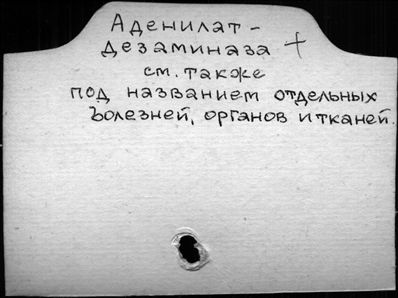 Аденилат-
дезаминаза +
см. также
под названием отдельных
болезней, органов и тканей.